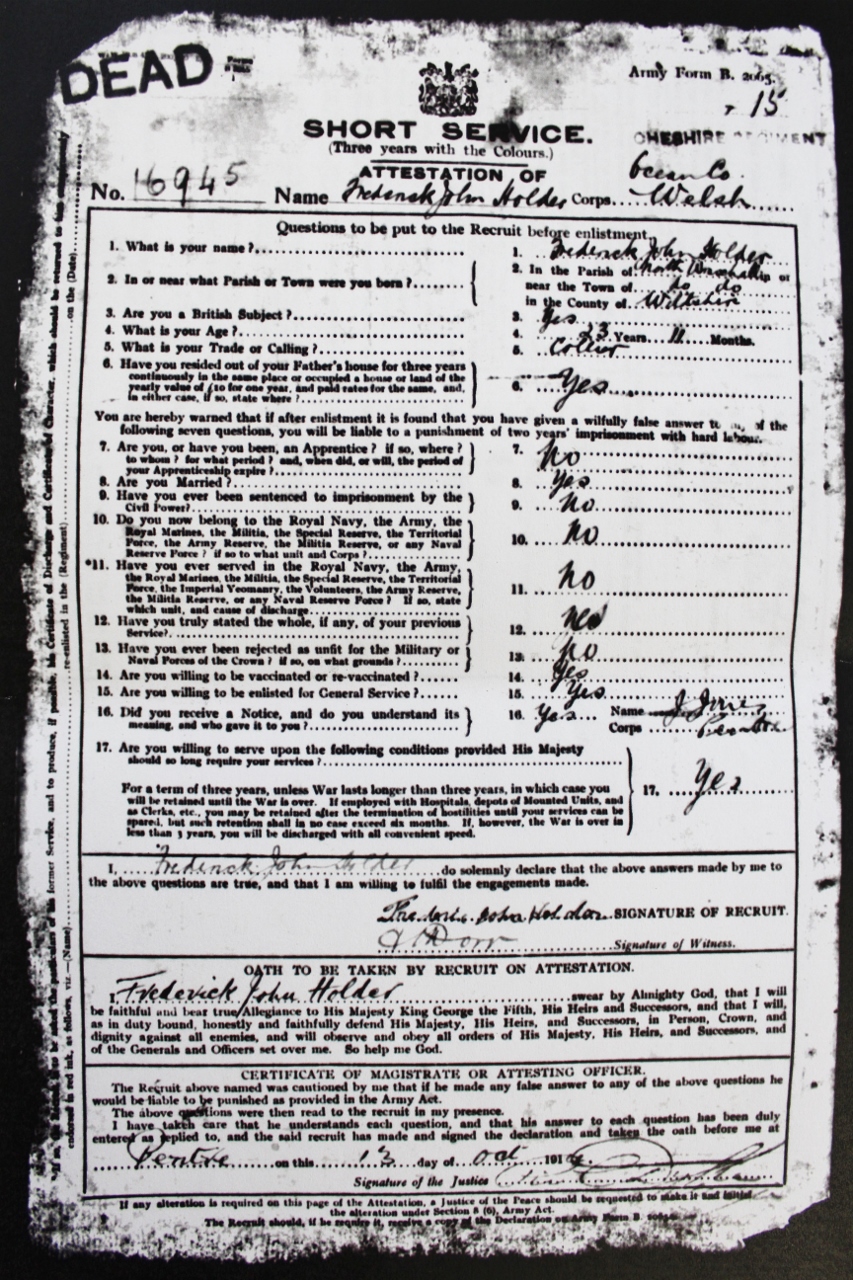 DEAD
Army Form B. 2065.
15
SHORT SERVICE.
CHESHIRE REGIMENT
(Three years with the Colours.)
ATTESTATION OF
Ocean Co.
No. 16945 Name Frederick John Holder Corps Welsh
Questions to be put to the Recruit before enlistment.
1. What is your name? 1. Frederick John Holder
2. In or near what Parish or Town were you born? 2. In the Parish of North or
near the Town of do do
in the County of Wiltshire
3. Are you a British Subject? 3. Yes
4. What is your Age? 4. 23 Years 11 Months.
5. What is your Trade or Calling? 5. Collier
6. Have you resided out of your Father's house for three years
continuously in the same place or occupied a house or land of the
yearly value of £10 for one year, and paid rates for the same, and,
in either case, if so, state where? 6. Yes
You are hereby warned that if after enlistment it is found that you have given a wilfully false answer to of the
following seven questions, you will be liable to a punishment of two years' imprisonment with hard labour.
7. Are you, or have you been, an Apprentice? if so, where? 7. No
to whom? for what period? and, when did, or will, the period of
your Apprenticeship expire?
8. Are you Married? 8. Yes
9. Have you ever been sentenced to imprisonment by the
Civil Power? 9. No
10. Do you now belong to the Royal Navy, the Army, the
Royal Marines, the Militia, the Special Reserve, the Territorial
Force, the Army Reserve, the Militia Reserve, or any Naval
Reserve Force? if so to what unit and Corps? 10. No
*11. Have you ever served in the Royal Navy, the Army,
the Royal Marines, the Militia, the Special Reserve, the Territorial
Force, the Imperial Yeomanry, the Volunteers, the Army Reserve,
the Militia Reserve, or any Naval Reserve Force? If so, state
which unit, and cause of discharge 11. No
12. Have you truly stated the whole, if any, of your previous
Service? 12. Yes
13. Have you ever been rejected as unfit for the Military or
Naval Forces of the Crown? if so, on what grounds? 13. No
14. Are you willing to be vaccinated or re-vaccinated? 14. Yes
15. Are you willing to be enlisted for General Service? 15. Yes
16. Did you receive a Notice, and do you understand its
meaning, and who gave it to you? 16. Yes Name J Jones
Corps
17. Are you willing to serve upon the following conditions provided His Majesty
should so long require your services?
For a term of three years, unless War lasts longer than three years, in which case you
will be retained until the War is over. If employed with Hospitals, depots of Mounted Units, and
as Clerks, etc., you may be retained after the termination of hostilities until your services can be
spared, but such retention shall in no case exceed six months. If, however, the War is over in
less than 3 years, you will be discharged with all convenient speed. 17. Yes
I, Frederick John Holder do solemnly declare that the above answers made by me to
the above questions are true, and that I am willing to fulfil the engagements made.
Frederic John Holder SIGNATURE OF RECRUIT.
Signature of Witness.
OATH TO BE TAKEN BY RECRUIT ON ATTESTATION.
I, Frederick John Holder swear by Almighty God, that I will
be faithful and bear true Allegiance to His Majesty King George the Fifth, His Heirs and Successors, and that I will,
as in duty bound, honestly and faithfully defend His Majesty, His Heirs, and Successors, in Person, Crown, and
dignity against all enemies, and will observe and obey all orders of His Majesty, His Heirs, and Successors, and
of the Generals and Officers set over me. So help me God.
CERTIFICATE OF MAGISTRATE OR ATTESTING OFFICER.
The Recruit above named was cautioned by me that if he made any false answer to any of the above questions he
would be liable to be punished as provided in the Army Act.
The above questions were then read to the recruit in my presence.
I have taken care that he understands each question, and that his answer to each question has been duly
entered as replied to, and the said recruit has made and signed the declaration and taken the oath before me at
Pentre on this 13 day of Oct 191
Signature of the Justice
If any alteration is required on this page of the Attestation, a Justice of the Peace should be requested to make it and initial
the alteration under Section 8 (6), Army Act.
The Recruit should, if he require it, receive a copy of the Declaration on Army Form B.